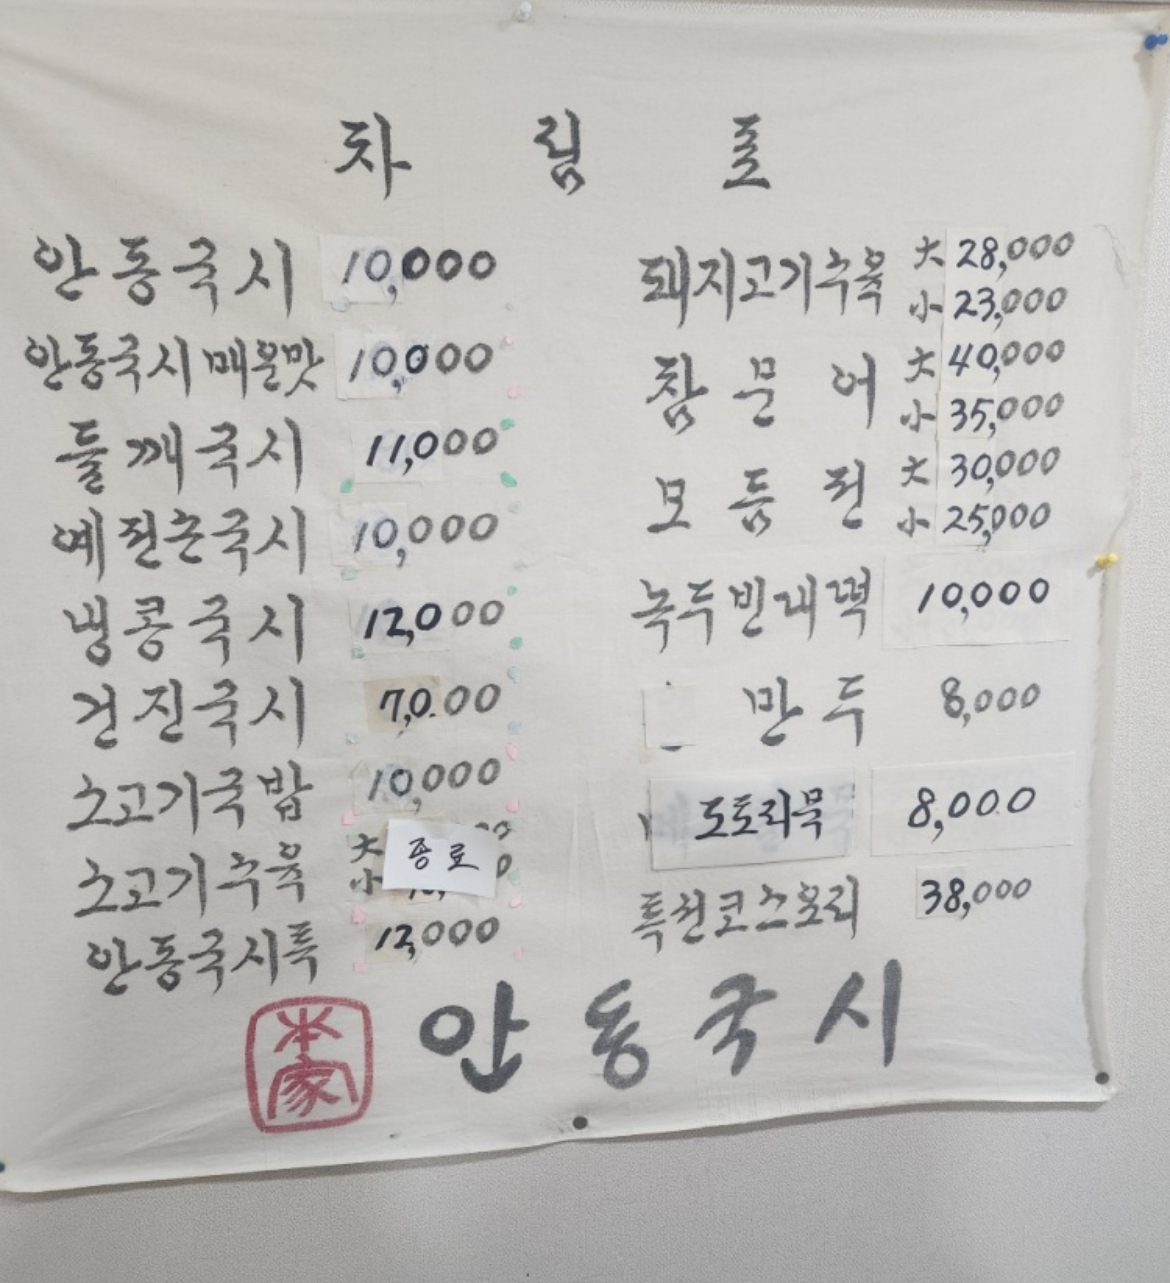 차림표
안동국시 10,000
안동국시매운맛 10,000
들깨국시 11,000
예전손국시 10,000
냉콩국시 12,000
건진국시 7,000
소고기국밥 10,000
소고기수육 大 小 종료
안동국시특 12,000
돼지고기수육 大 28,000
小 23,000
참문어 大 40,000
小 35,000
모듬전 大 30,000
小 25,000
녹두빈대떡 10,000
만두 8,000
도토리묵 8,000
특선코스요리 38,000
本家 안동국시